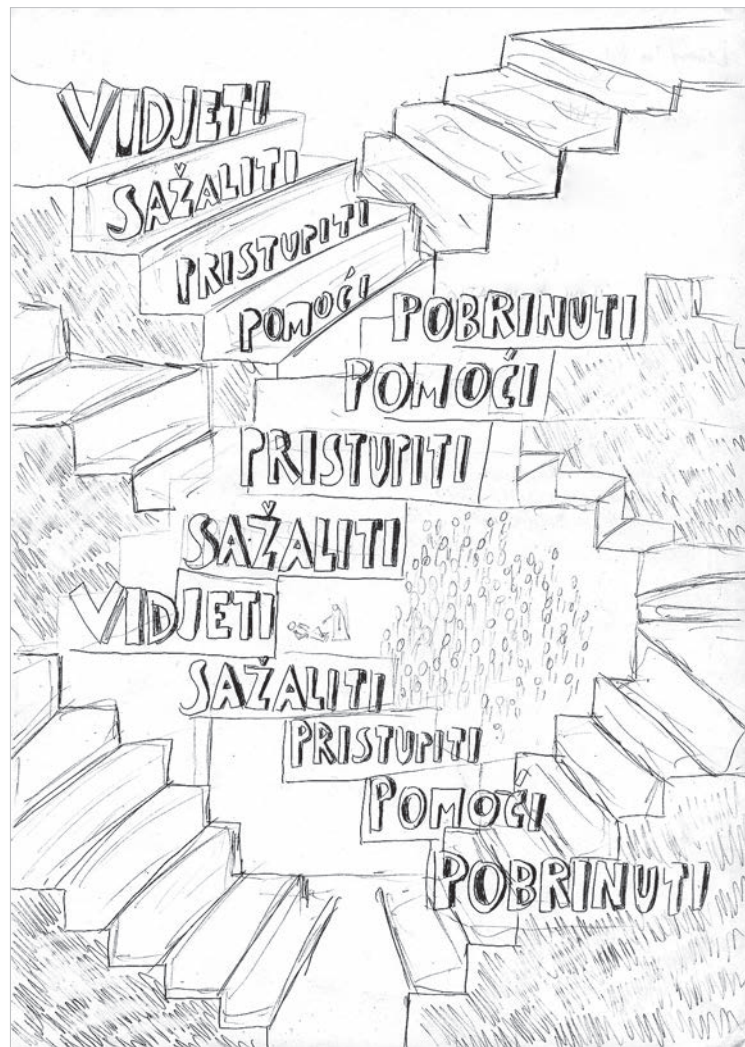 VIDJETI
SAŽALITI
PRISTUPITI
POMOĆI
POBRINUTI
POMOĆI
PRISTUPITI
SAŽALITI
VIDJETI
SAŽALITI
PRISTUPITI
POMOĆI
POBRINUTI